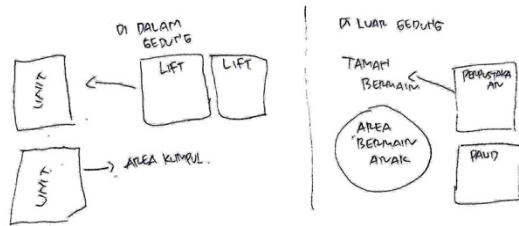 DI DALAM
GEDUNG
LIFT
LIFT
UNIT
UNIT
AREA KUMPUL.
DI LUAR GEDUNG
TAMAN
BERMAIN
PERPUSTAKA
AN
AREA
BERMAIN
ANAK
PAUD